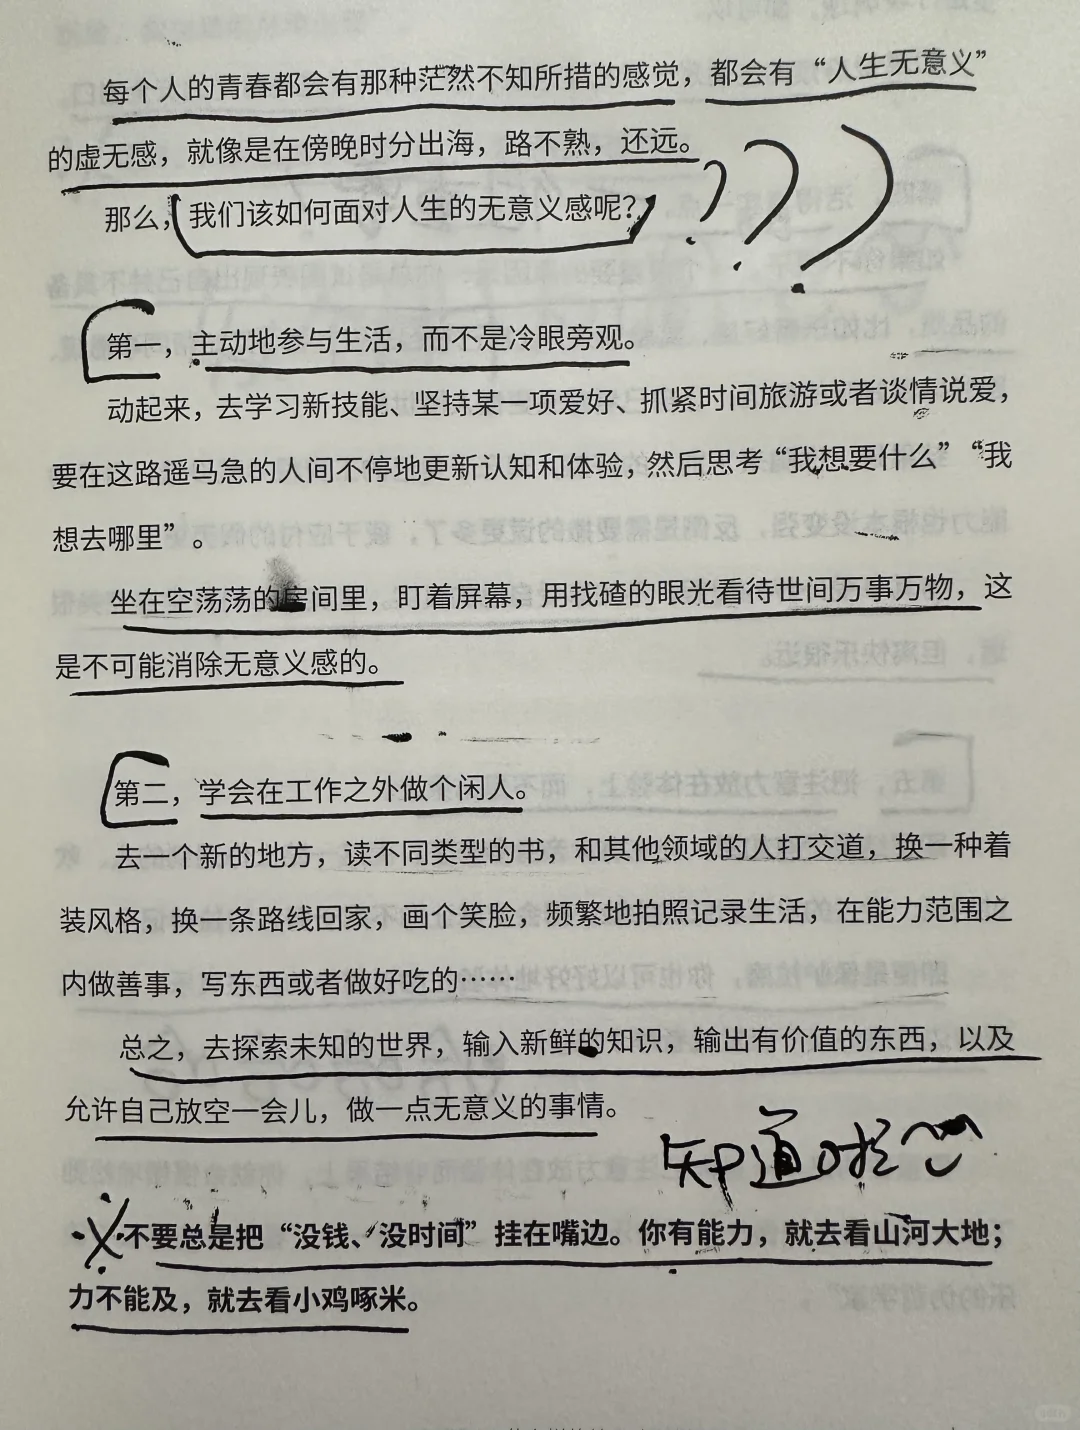 每个人的青春都会有那种茫然不知所措的感觉，都会有“人生无意义”
的虚无感，就像是在傍晚时分出海，路不熟，还远。
那么，我们该如何面对人生的无意义感呢？
???
第一，主动地参与生活，而不是冷眼旁观。
动起来，去学习新技能、坚持某一项爱好、抓紧时间旅游或者谈情说爱，
要在这路遥马急的人间不停地更新认知和体验，然后思考“我想要什么”“我
想去哪里”。
坐在空荡荡的房间里，盯着屏幕，用找碴的眼光看待世间万事万物，这
是不可能消除无意义感的。
第二，学会在工作之外做个闲人。
去一个新的地方，读不同类型的书，和其他领域的人打交道，换一种着
装风格，换一条路线回家，画个笑脸，频繁地拍照记录生活，在能力范围之
内做善事，写东西或者做好吃的……
总之，去探索未知的世界，输入新鲜的知识，输出有价值的东西，以及
允许自己放空一会儿，做一点无意义的事情。
知道啦
不要总是把“没钱、没时间”挂在嘴边。你有能力，就去看山河大地；
力不能及，就去看小鸡啄米。